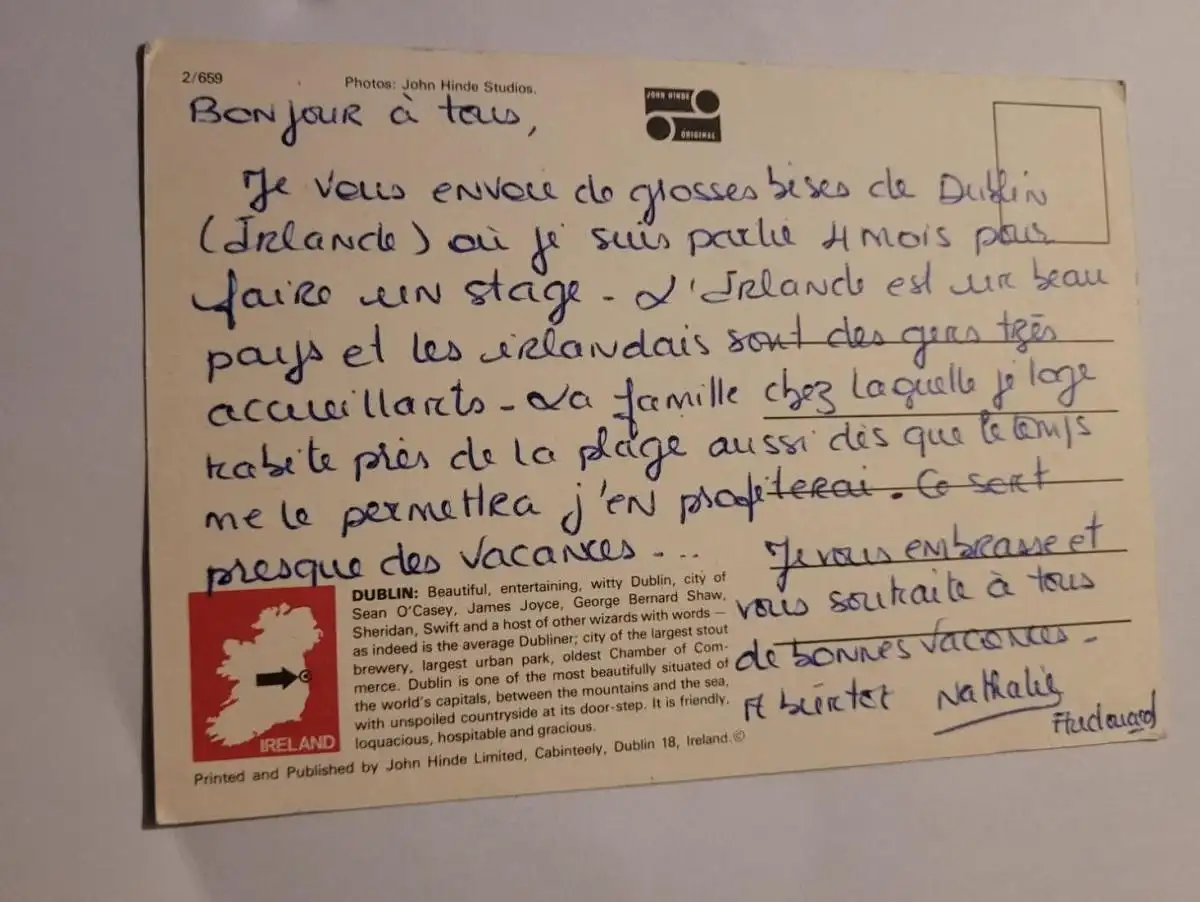 2/659
Photos: John Hinde Studios.
JOHN HINDE
ORIGINAL
Bonjour à tous,
Je vous envoie de grosses bises de Dublin
(Irlande) où je suis partie 4 mois pour
faire un stage - L'Irlande est un beau
pays et les irlandais sont des gens très
accueillants - La famille chez laquelle je loge
habite près de la plage aussi dès que le temps
me le permettra j'en profiterai. Ce sont
presque des vacances ...
Je vous embrasse et
vous souhaite à tous
de bonnes vacances -
A bientôt Nathalie
Audouard
DUBLIN: Beautiful, entertaining, witty Dublin, city of
Sean O'Casey, James Joyce, George Bernard Shaw,
Sheridan, Swift and a host of other wizards with words —
as indeed is the average Dubliner; city of the largest stout
brewery, largest urban park, oldest Chamber of Com-
merce. Dublin is one of the most beautifully situated of
the world's capitals, between the mountains and the sea,
with unspoiled countryside at its door-step. It is friendly,
loquacious, hospitable and gracious.
IRELAND
Printed and Published by John Hinde Limited, Cabinteely, Dublin 18, Ireland.©